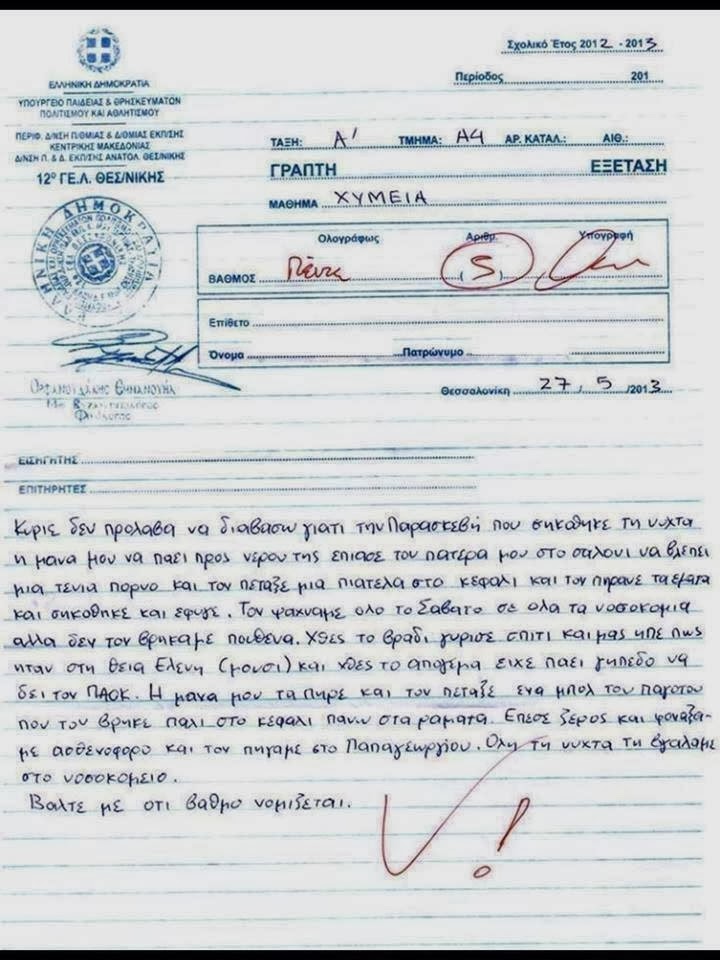 Σχολικό Έτος 2012 - 2013
Περίοδος 201
ΕΛΛΗΝΙΚΗ ΔΗΜΟΚΡΑΤΙΑ
ΥΠΟΥΡΓΕΙΟ ΠΑΙΔΕΙΑΣ & ΘΡΗΣΚΕΥΜΑΤΩΝ
ΠΟΛΙΤΙΣΜΟΥ ΚΑΙ ΑΘΛΗΤΙΣΜΟΥ
ΠΕΡΙΦ. Δ/ΝΣΗ Π/ΘΜΙΑΣ & Δ/ΘΜΙΑΣ ΕΚΠ/ΣΗΣ
ΚΕΝΤΡΙΚΗΣ ΜΑΚΕΔΟΝΙΑΣ
Δ/ΝΣΗ Π. & Δ. ΕΚΠ/ΣΗΣ ΑΝΑΤΟΛ. ΘΕΣ/ΝΙΚΗΣ
12ο ΓΕ.Λ. ΘΕΣ/ΝΙΚΗΣ
ΤΑΞΗ: Α' ΤΜΗΜΑ: Α4 ΑΡ. ΚΑΤΑΛ.: ΑΙΘ.:
ΓΡΑΠΤΗ ΕΞΕΤΑΣΗ
ΜΑΘΗΜΑ ΧΥΜΕΙΑ
Ολογράφως Αριθμ. Υπογραφή
ΒΑΘΜΟΣ Πέντε (5)
Επίθετο
Όνομα Πατρώνυμο
Θεσσαλονίκη 27 / 5 /2013
ΕΙΣΗΓΗΤΗΣ
ΕΠΙΤΗΡΗΤΕΣ
Κυριε δεν προλαβα να διαβασω γιατι την Παρασκεβή που σηκοθηκε τη νυχτα
η μανα μου να παει προς νερου της επιασε τον πατερα μου στο σαλονι να βλεπει
μια τενια πορνο και τον πεταξε μια πιατελα στο κεφαλι και τον πηρανε τα εματα
και σηκοθηκε και εφυγε. Τον ψαχναμε ολο το Σαβατο σε ολα τα νοσοκομια
αλλα δεν τον βρηκαμε πουθενα. Χθες το βραδι γυρισε σπιτι και μας ηπε πως
ηταν στη θεια Ελενη (μουσι) και χθες το απογεμα ειχε παει γηπεδο να
δει τον ΠΑΟΚ. Η μανα μου τα πηρε και τον πεταξε ενα μπολ του παγοτου
που τον βρηκε παλι στο κεφαλι πανω στα ραματα. Επεσε ξερος και φοναξα-
με ασθενοφορο και τον πηγαμε στο Παπαγεωργιου. Ολη τη νυχτα τη βγαλαμε
στο νοσοκομειο.
Βαλτε με οτι βαθμο νομιζεται.